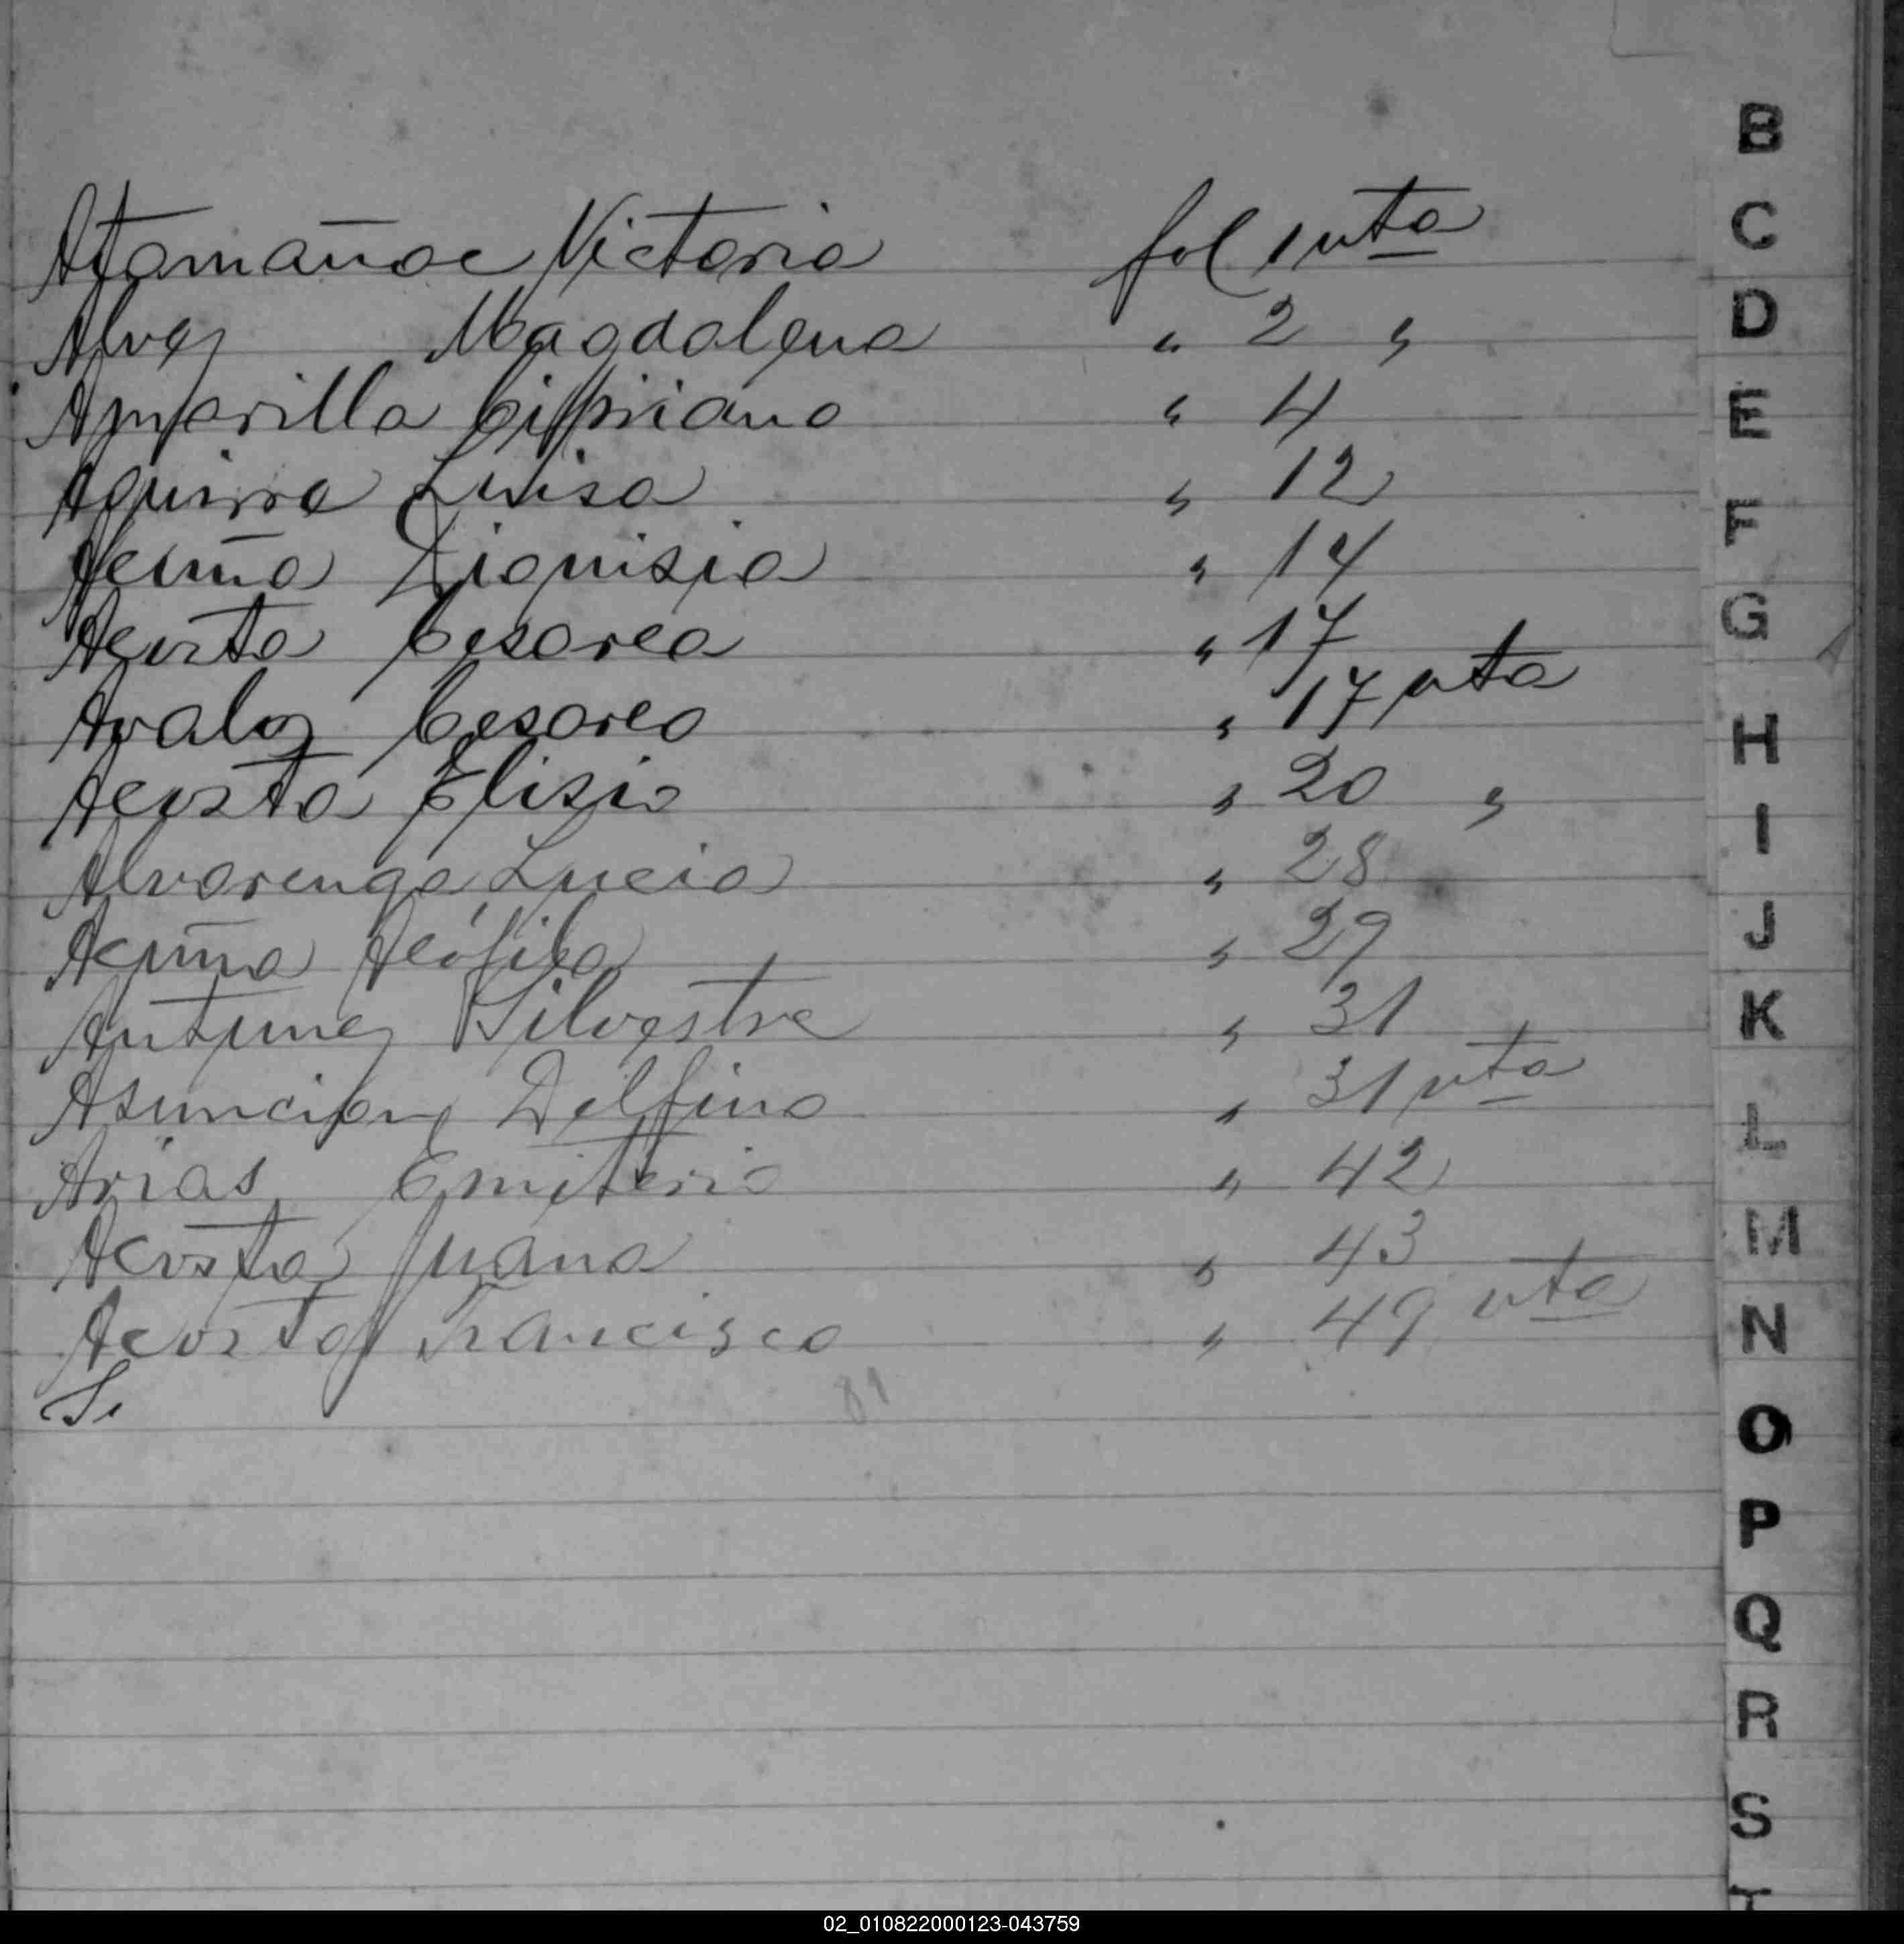 Atamañoc Victoria fol 1 vta
Alvez Magdalena " 2 "
Amarilla Cipriano " 4
Aquirre Luisa " 12
Acuña Dionisia " 14
Acosta Cesarea " 17
Avalos Cesareo " 17 vta
Acosta Elisio " 20 "
Alvarenga Lucia " 28
Acuña Teófila " 29
Antunez Silvestre " 31
Asuncion Delfino " 31 vta
Arias Emiterio " 42
Acosta Juana " 43
Acosta Francisco " 49 vta
81
B
C
D
E
F
G
H
I
J
K
L
M
N
O
P
Q
R
S
T
02_010822000123-043759